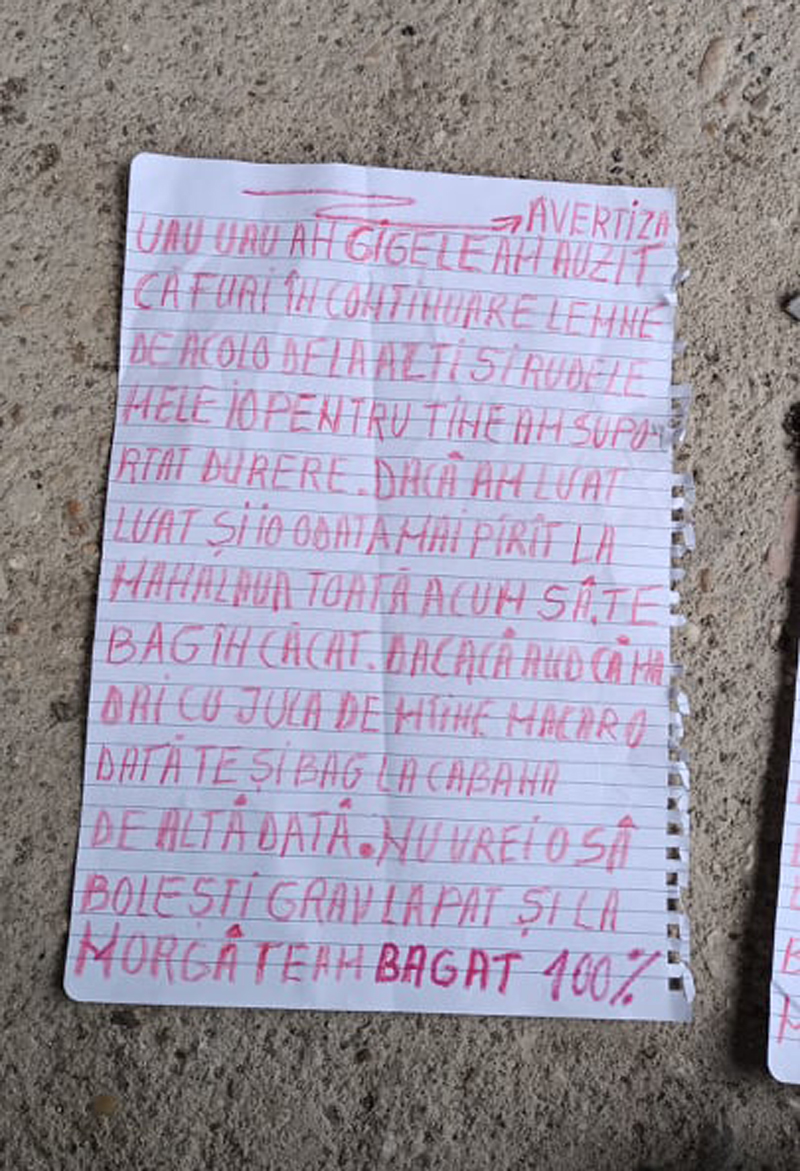 AVERTIZA
UAU UAU AM GIGELE AM AUZIT
CĂ FURI ÎN CONTINUARE LEMNE
DE ACOLO DE LA AZTI SI RUDELE
MELE IO PENTRU TINE AM SUPO
RTAT DURERE. DACÂ AM LUAT
LUAT ȘI IO ODATA MAI PÎRÎT LA
MAHALAUA TOATĂ ACUM SÂ.TE
BAG ÎN CĂCAT. DACACÂ AUD CÂ MA
DAI CU JULA DE MTINE MACAR O
DATĂ TE ȘI BAG LA CABANA
DE ALTÂ DATÂ. NU VREI O SÂ
BOLESTI GRAV LA PAT ȘI LA
MORGÂ TE AM BAGAT 100%